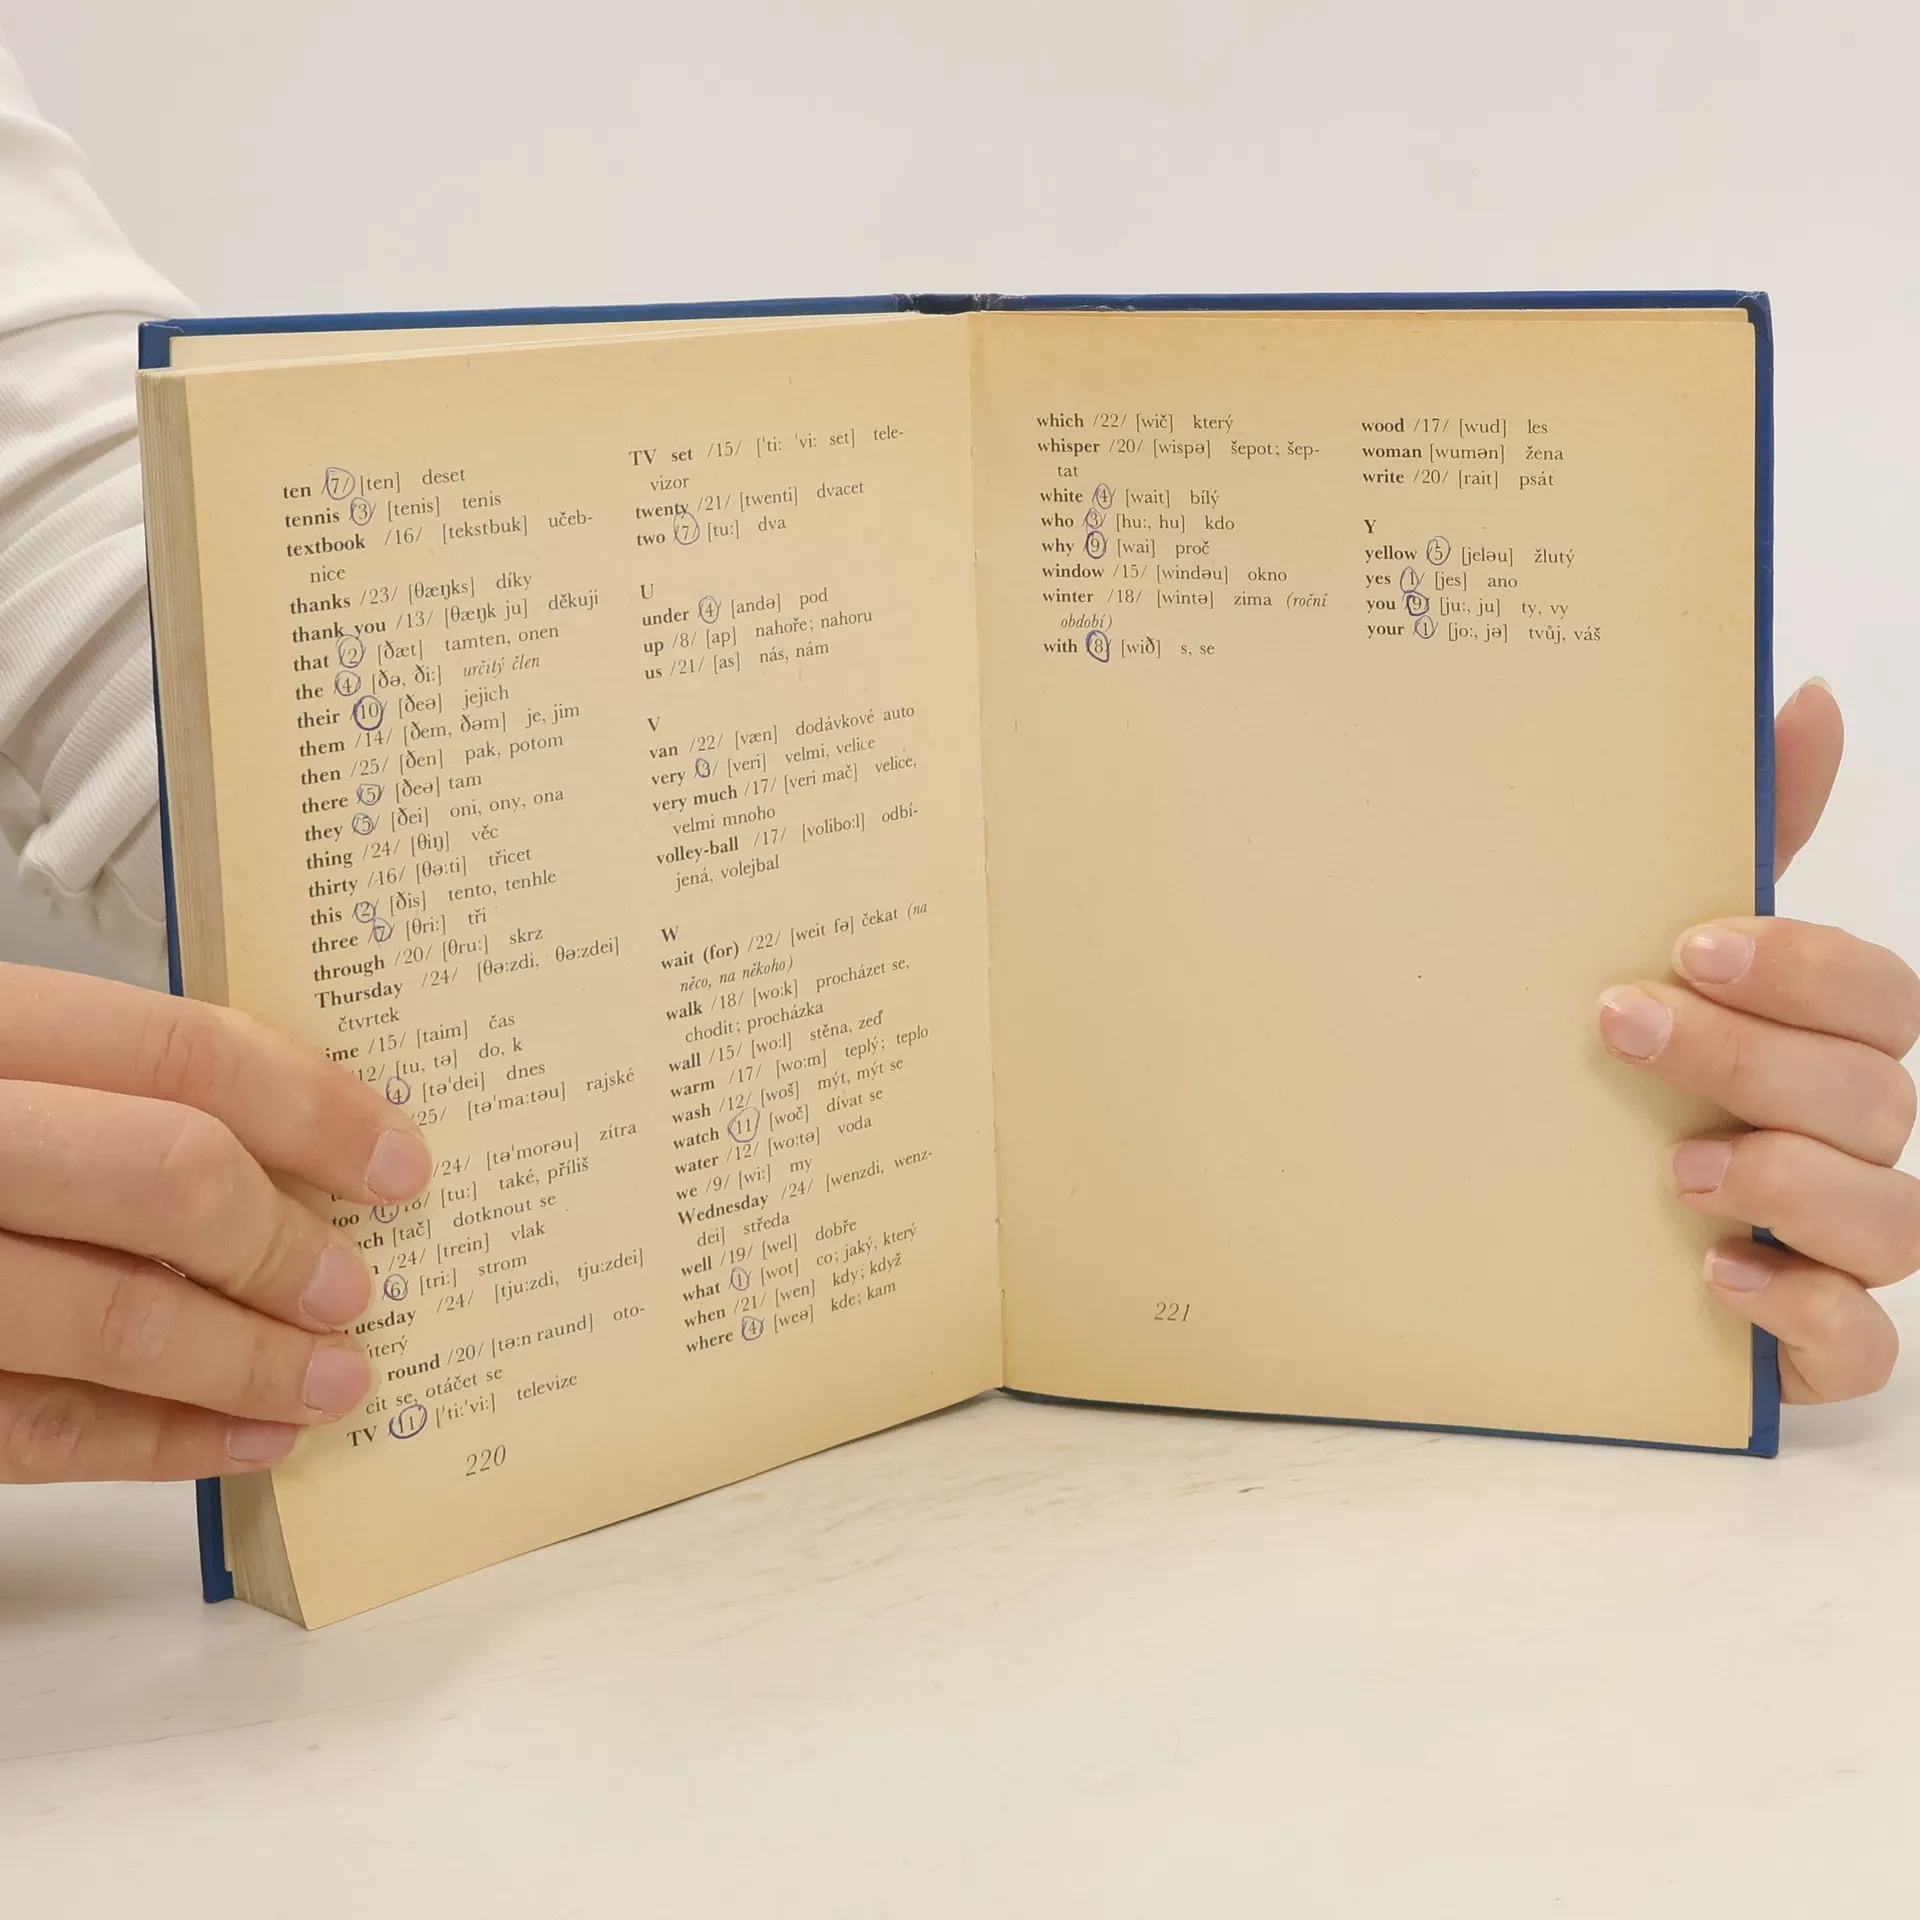 ten /7/ [ten] deset
tennis /3/ [tenis] tenis
textbook /16/ [tekstbuk] učeb-
nice
thanks /23/ [θæŋks] díky
thank you /13/ [θæŋk ju] děkuji
that /2/ [ðæt] tamten, onen
the /4/ [ðə, ði:] určitý člen
their /10/ [ðeə] jejich
them /14/ [ðem, ðəm] je, jim
then /25/ [ðen] pak, potom
there /5/ [ðeə] tam
they /5/ [ðei] oni, ony, ona
thing /24/ [θiŋ] věc
thirty /16/ [θə:ti] třicet
this /2/ [ðis] tento, tenhle
three /7/ [θri:] tři
through /20/ [θru:] skrz
Thursday /24/ [θə:zdi, θə:zdei]
čtvrtek
ime /15/ [taim] čas
/12/ [tu, tə] do, k
/4/ [tə'dei] dnes
/25/ [tə'ma:təu] rajské
/24/ [tə'morəu] zítra
too /1, 18/ [tu:] také, příliš
ch [tač] dotknout se
/24/ [trein] vlak
/6/ [tri:] strom
uesday /24/ [tju:zdi, tju:zdei]
úterý
round /20/ [tə:n raund] oto-
čit se, otáčet se
TV /11/ ['ti:'vi:] televize
220
TV set /15/ ['ti: 'vi: set] tele-
vizor
twenty /21/ [twenti] dvacet
two /7/ [tu:] dva
U
under /4/ [andə] pod
up /8/ [ap] nahoře; nahoru
us /21/ [as] nás, nám
V
van /22/ [væn] dodávkové auto
very /3/ [veri] velmi, velice
very much /17/ [veri mač] velice,
velmi mnoho
volley-ball /17/ [volibo:l] odbí-
jená, volejbal
W
wait (for) /22/ [weit fə] čekat (na
něco, na někoho)
walk /18/ [wo:k] procházet se,
chodit; procházka
wall /15/ [wo:l] stěna, zeď
warm /17/ [wo:m] teplý; teplo
wash /12/ [woš] mýt, mýt se
watch /11/ [woč] dívat se
water /12/ [wo:tə] voda
we /9/ [wi:] my
Wednesday /24/ [wenzdi, wenz-
dei] středa
well /19/ [wel] dobře
what /1/ [wot] co; jaký, který
when /21/ [wen] kdy; když
where /4/ [weə] kde; kam
which /22/ [wič] který
whisper /20/ [wispə] šepot; šep-
tat
white /4/ [wait] bílý
who /3/ [hu:, hu] kdo
why /9/ [wai] proč
window /15/ [windəu] okno
winter /18/ [wintə] zima (roční
období)
with /8/ [wið] s, se
wood /17/ [wud] les
woman [wumən] žena
write /20/ [rait] psát
Y
yellow /5/ [jeləu] žlutý
yes /1/ [jes] ano
you /9/ [ju:, ju] ty, vy
your /1/ [jo:, jə] tvůj, váš
221